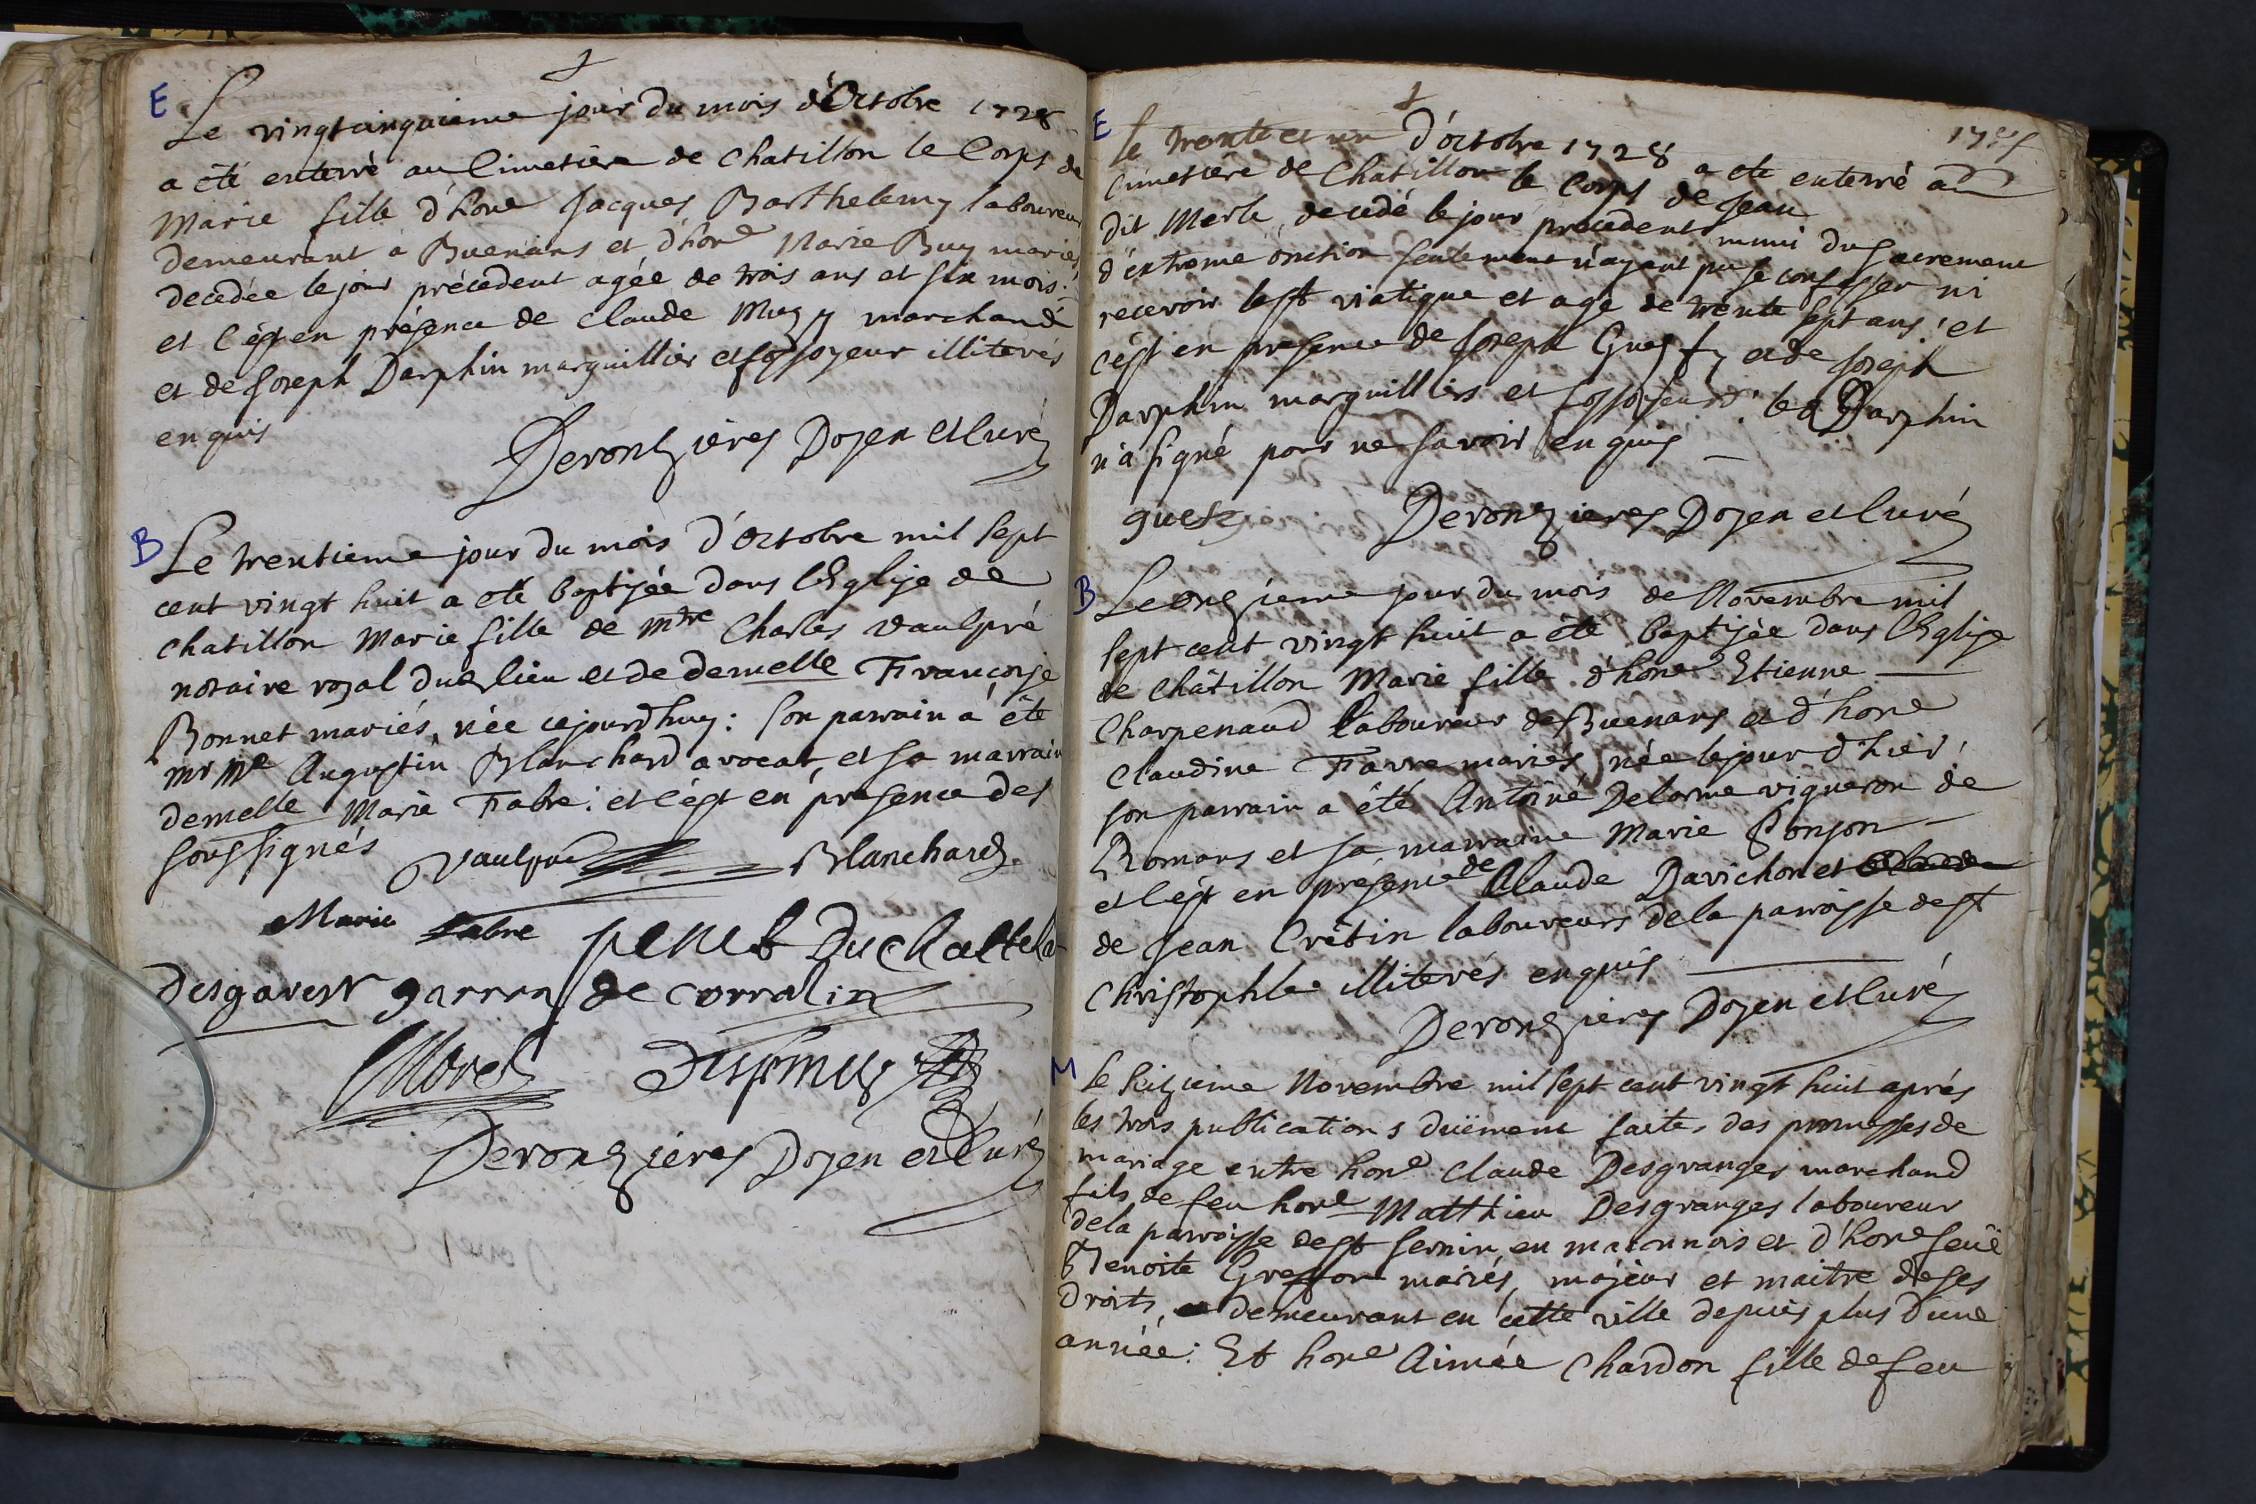 E
Le vingtcinquieme jour du mois d'Octobre 1728
a été enterré au Cimetière de chatillon le Corps de
Marie fille d'hone Jacques Barthelemy laboureur
demeurant a Buenans et d'hone Marie Buy mariés
decedée le jour précédent agée de trois ans et six mois:
et c'est en présence de Claude Muzy marchand
et de Joseph Darphin marguillier et fossoyeur illiterés
enquis
Deronzieres Doyen et Curé
B
Le trentieme jour du mois d'Octobre mil sept
cent vingt huit a été baptisée dans l'Eglise de
chatillon Marie fille de mtre Charles Vaulpré
notaire royal dud lieu et de demelle Françoise
Bonnet mariés, née cejourdhuy: son parrain a été
mr me Augustin Blanchard avocat, et sa marraine
demelle Marie Fabre: et c'est en présence des
soussignés
Vaulpré Blanchard
Marie fabre Duchattela
Desgarest de corralin
Morel
Deronzieres Doyen et Curé
E
le trente et un d'octobre 1728 a ete enterré au
cimetiere de Chatillon le Corps de Jean
dit Merle, decedé le jour précédent muni du sacrement
d'extreme onction seulement n'ayant pu se confesser ni
recevoir le st viatique et age de trente sept ans: et
c'est en presence de Joseph et de Joseph
Darphin marguilliers et fossoyeur: led Darphin
n'a signé pour ne savoir enquis
Deronzieres Doyen et Curé
B
Le onzieme jour du mois de Novembre mil
sept cent vingt huit a été baptisée dans l'Eglise
de Châtillon Marie fille d'hone Etienne
Charpenaud laboureur de Buenans et d'hone
Claudine Favre mariés née le jour d'hier,
son parrain a été Antoine Delorme vigneron de
Romans et sa marraine Marie Ponson
et c'est en présence de Claude Ravichon et
de Jean Crêtin laboureurs de la parroisse de st
Christophle illiterés enquis
Deronzieres Doyen et Curé
M
le huizieme Novembre mil sept cent vingt huit aprés
les trois publications duëment faites des promesses de
mariage entre hone Claude Desgranges marchand
fils de feu hone Matthieu Desgranges laboureur
de la parroisse de st Sernin en maconnois et d'hone feuë
Benoite mariés, majeur et maitre de ses
droits, demeurant en cette ville depuis plus d'une
année: Et hone Aimée Chardon fille de feu